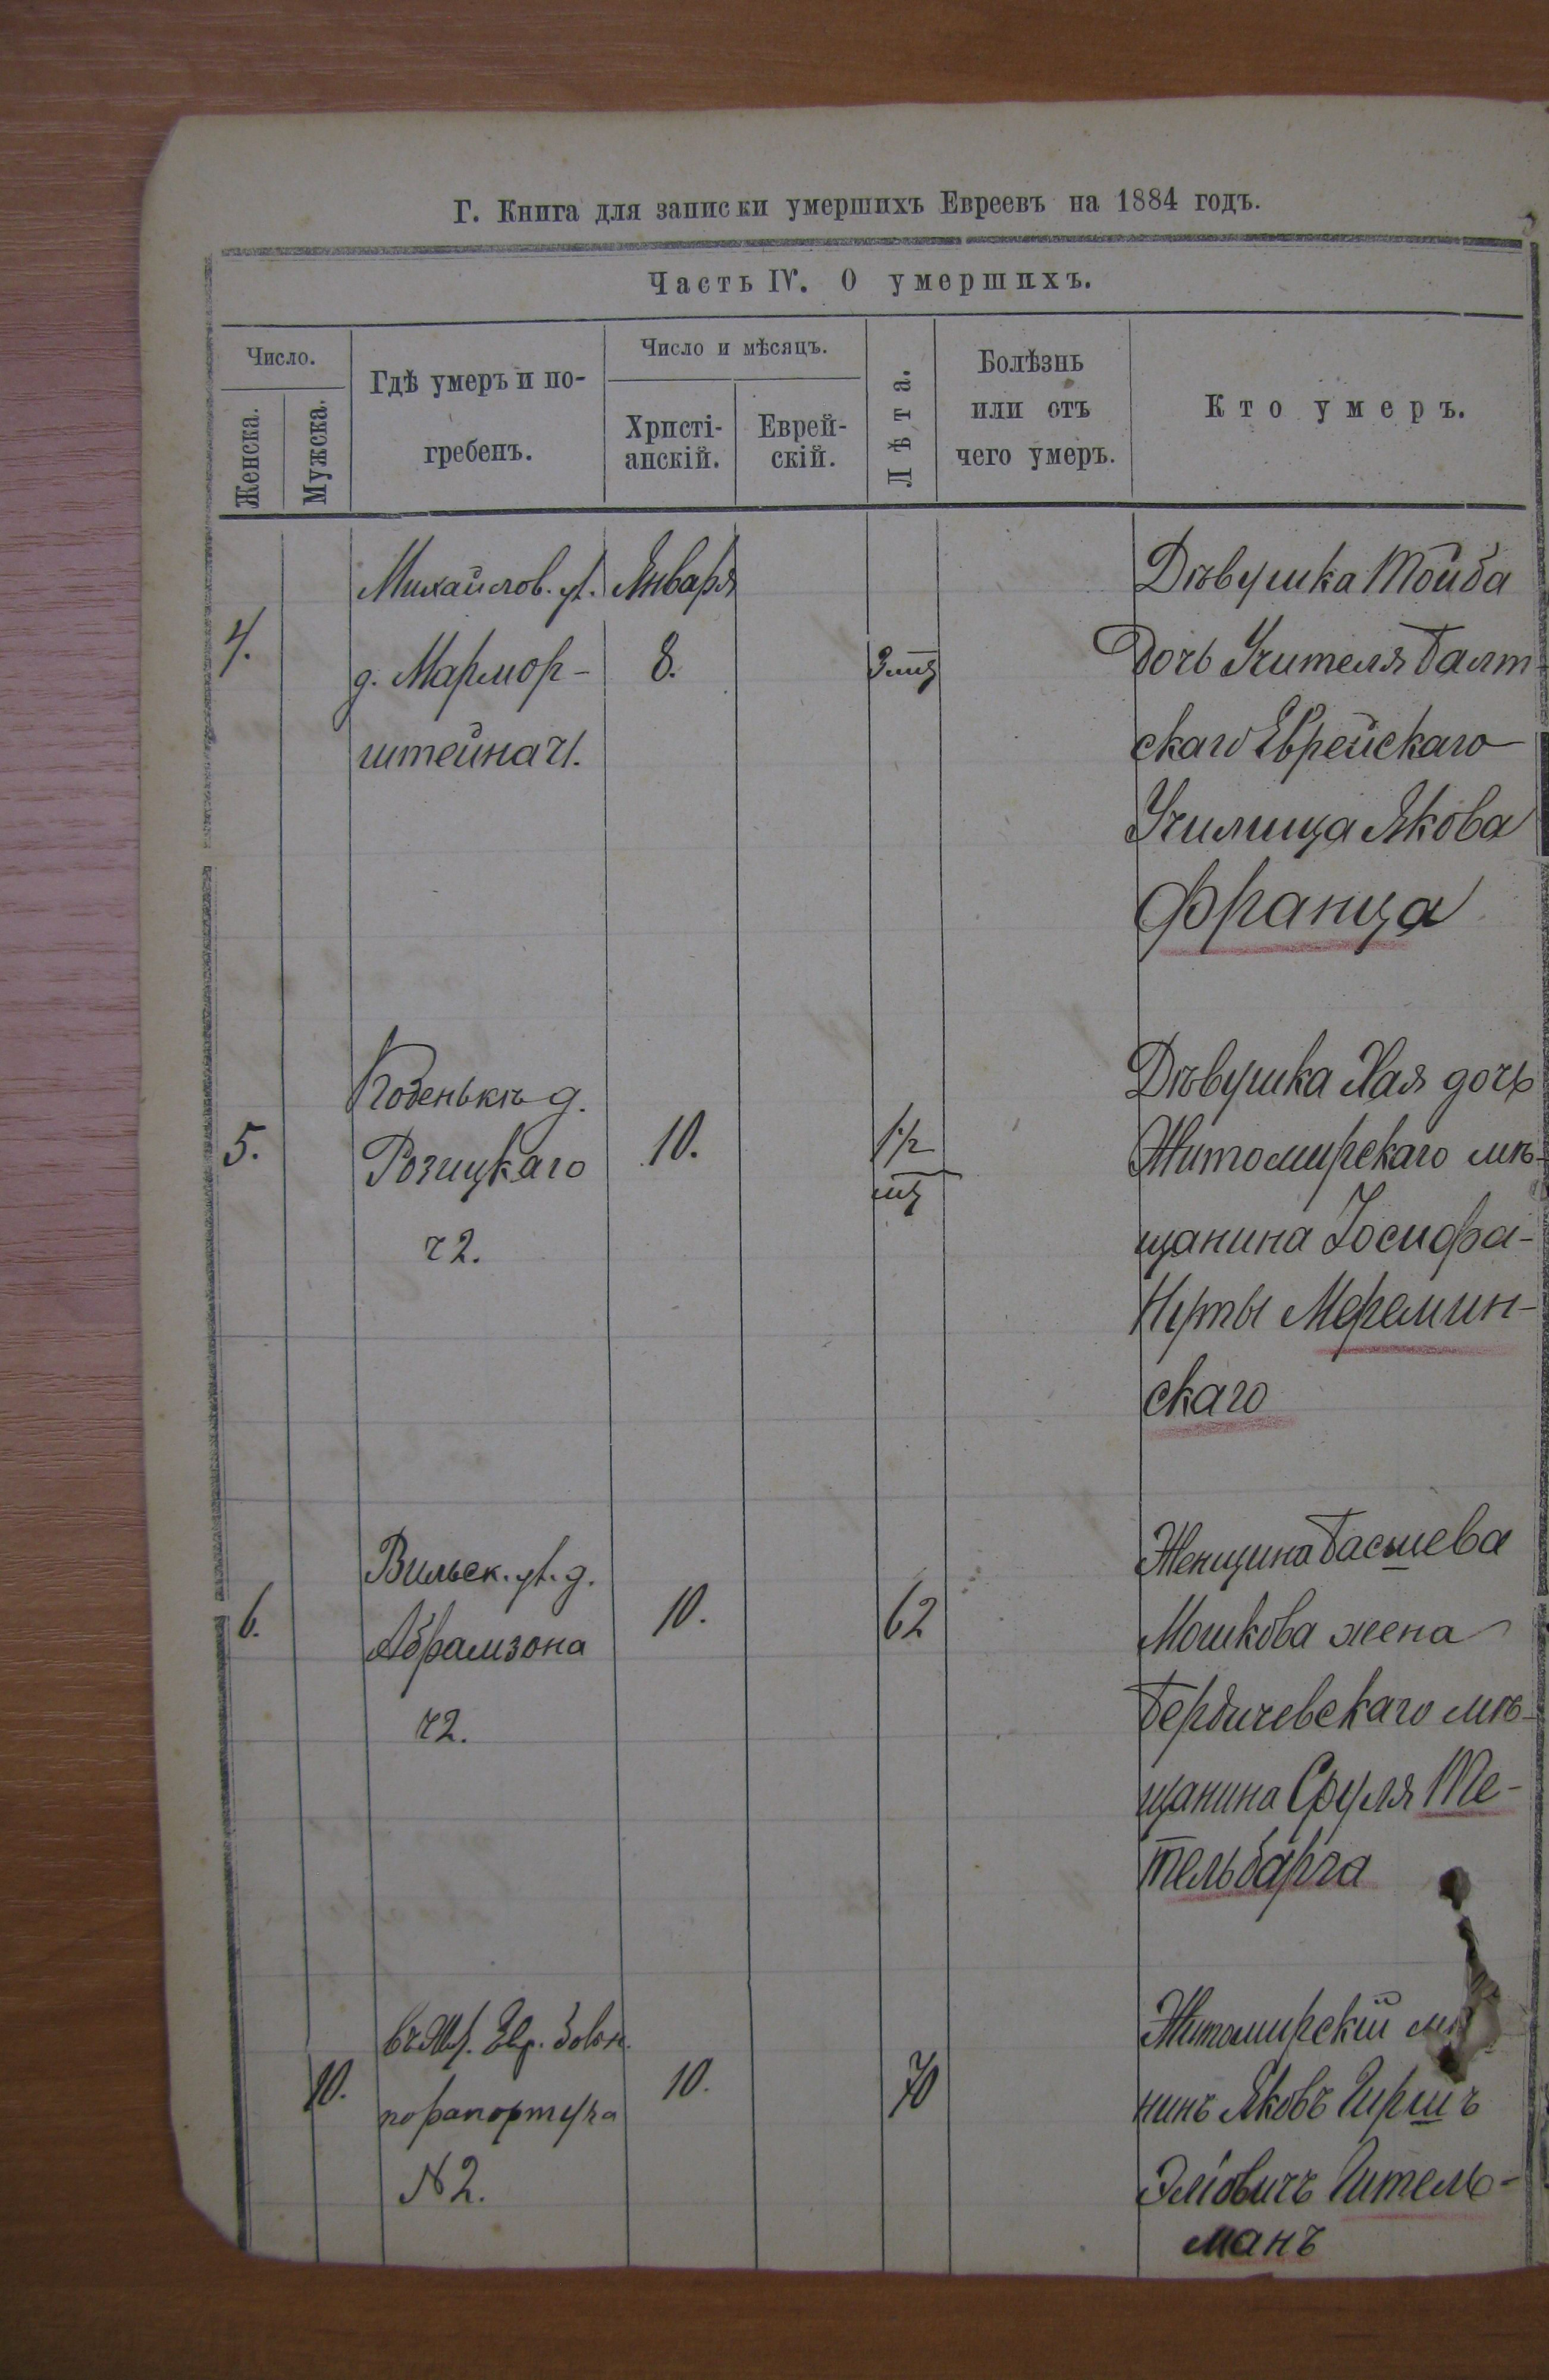 Г. Книга для записки умершихъ Евреевъ на 1884 годъ.
Часть IV. О умершихъ.
Число.
Женска.
Мужска.
Гдѣ умеръ и по-
гребенъ.
Число и мѣсяцъ.
Христі-
анскій.
Еврей-
скій.
Лѣта.
Болѣзнь
или отъ
чего умеръ.
Кто умеръ.
4.
Михайлов. ул.
д. Мармор-
штейна ч1.
Января
8.
3 мц
Дѣвушка Тойба
Дочь Учителя Балт-
скаго Еврейскаго
Училища Якова
Франца
5.
д.
Розицкаго
ч 2.
10.
1 1/2
мц
Дѣвушка Хая дочь
Житомирскаго мѣ-
щанина Іосифа-
Нуты Меремин-
скаго
6.
Вильск. ул. д.
Абрамзона
ч2.
10.
62
Женщина Басшева
Мошкова жена
Бердичевскаго мѣ-
щанина Сруля Те-
тельбарга
10.
въ Жит. Евр. больн.
по рапорту за
№ 2.
10.
70
Житомирскій
нинъ Яковъ Гиршъ
Эліовичъ Гитель-
манъ